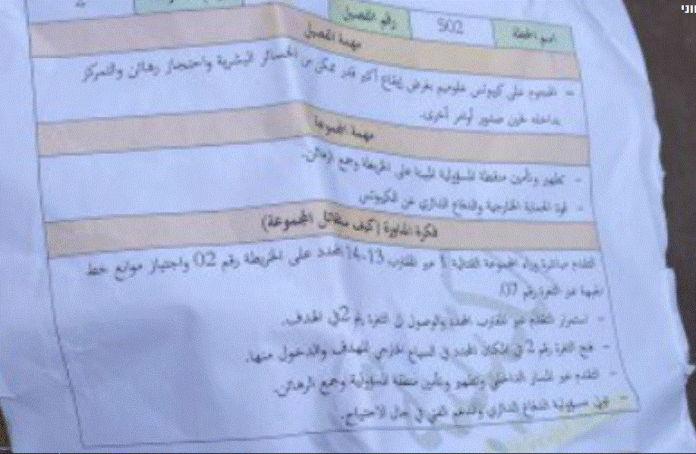 וני
اسم الخطة S02 رقم الفصيل
مهمة الفصيل
- الهجوم على كيبوتس بغرض إيقاع أكبر قدر ممكن من الخسائر البشرية واحتجاز رهائن والتمركز
بداخله لحين صدور أوامر أخرى.
مهمة المجموعة
- تطهير وتأمين منطقة المسؤولية المبينة على الخريطة وجمع الرهائن.
- الحماية الخارجية والدفاع الدائري عن الكيبوتس
فكرة المناورة (كيف ستقاتل المجموعة)
التقدم مباشرة وراء المجموعة القتالية 1 عبر التقارب 13-14 المحدد على الخريطة رقم 02 واجتياز موانع خط
عبر الثغرة رقم 07.
- استمرار التقدم عبر التقارب المحدد والوصول إلى الثغرة رقم 2 في الهدف.
- فتح الثغرة رقم 2 في المكان المحدد في السياج الخارجي للهدف والدخول منها.
- التقدم عبر المسار الداخلي وتطهير وتأمين منطقة المسؤولية وجمع الرهائن.
- مسؤولية الدفاع الدائري والدعم الفني في حال الاحتياج.